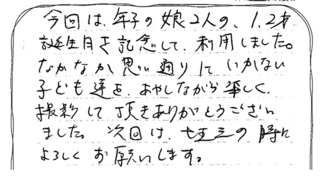 今回は、年子の娘2人の、1.2才
誕生日を記念して、利用しました。
なかなか思い通りにいかない
子ども達を、あやしながら楽しく
撮影して頂きありがとうござい
ました。次回は、七五三の時に
よろしくお願いします。